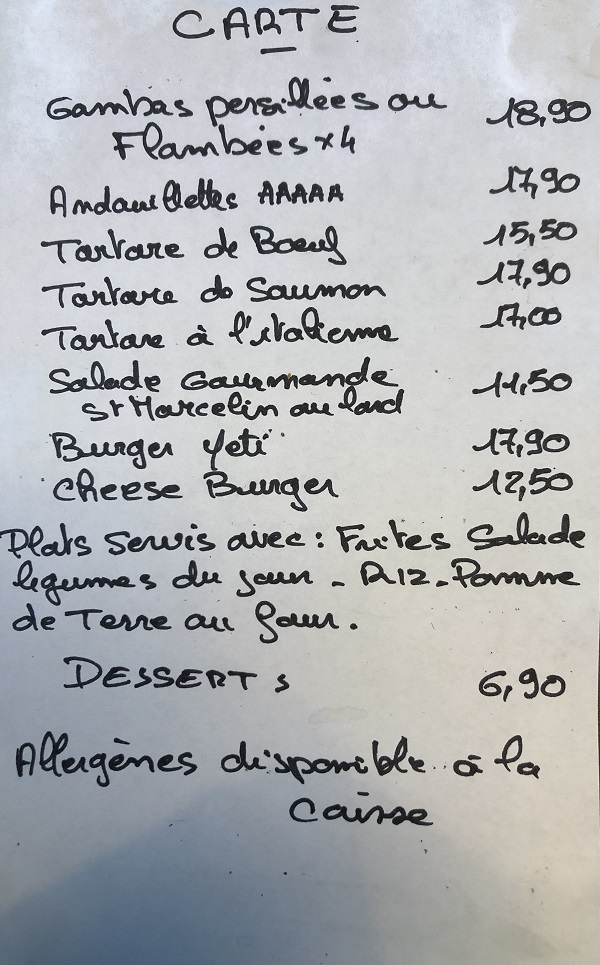 CARTE
Gambas persillées ou 18,90
Flambées x4
Andouillettes AAAAA 17,90
Tartare de Boeuf 15,50
Tartare de Saumon 17,90
Tartare à l'italienne 17,00
Salade Gourmande 11,50
St Marcelin au lard
Burger Yeti 17,90
Cheese Burger 12,50
Plats servis avec : Frites Salade
légumes du jour - Riz - Pomme
de Terre au four.
DESSERTS 6,90
Allergènes disponible à la
Caisse